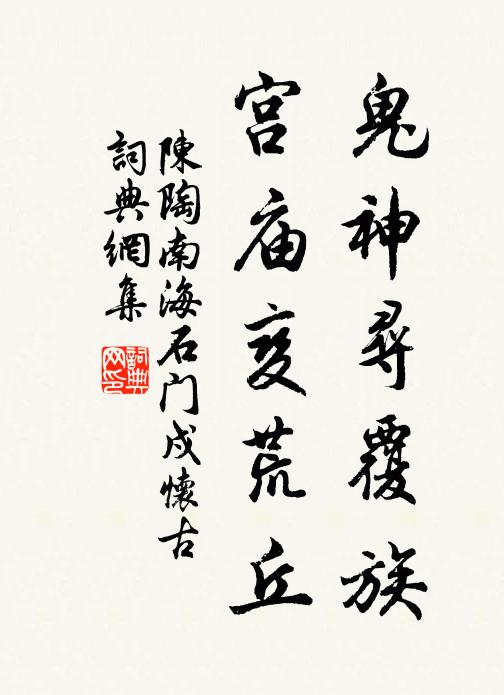 鬼神尋覆族
宫庙变荒丘
陳陶南海石门戍懷古
詞典網集
詞典网印